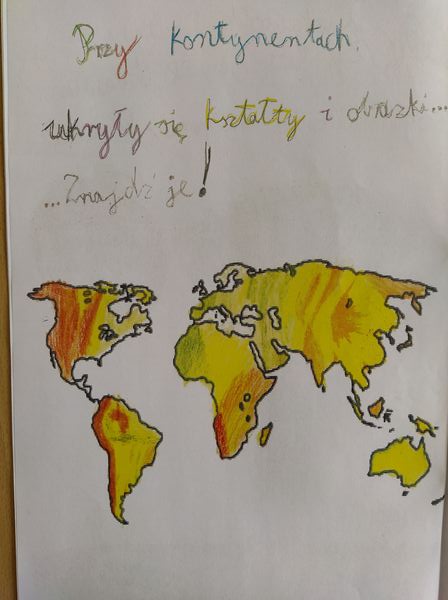 Przy kontynentach.
ukryły się kształty i obrazki...
...Znajdź je!